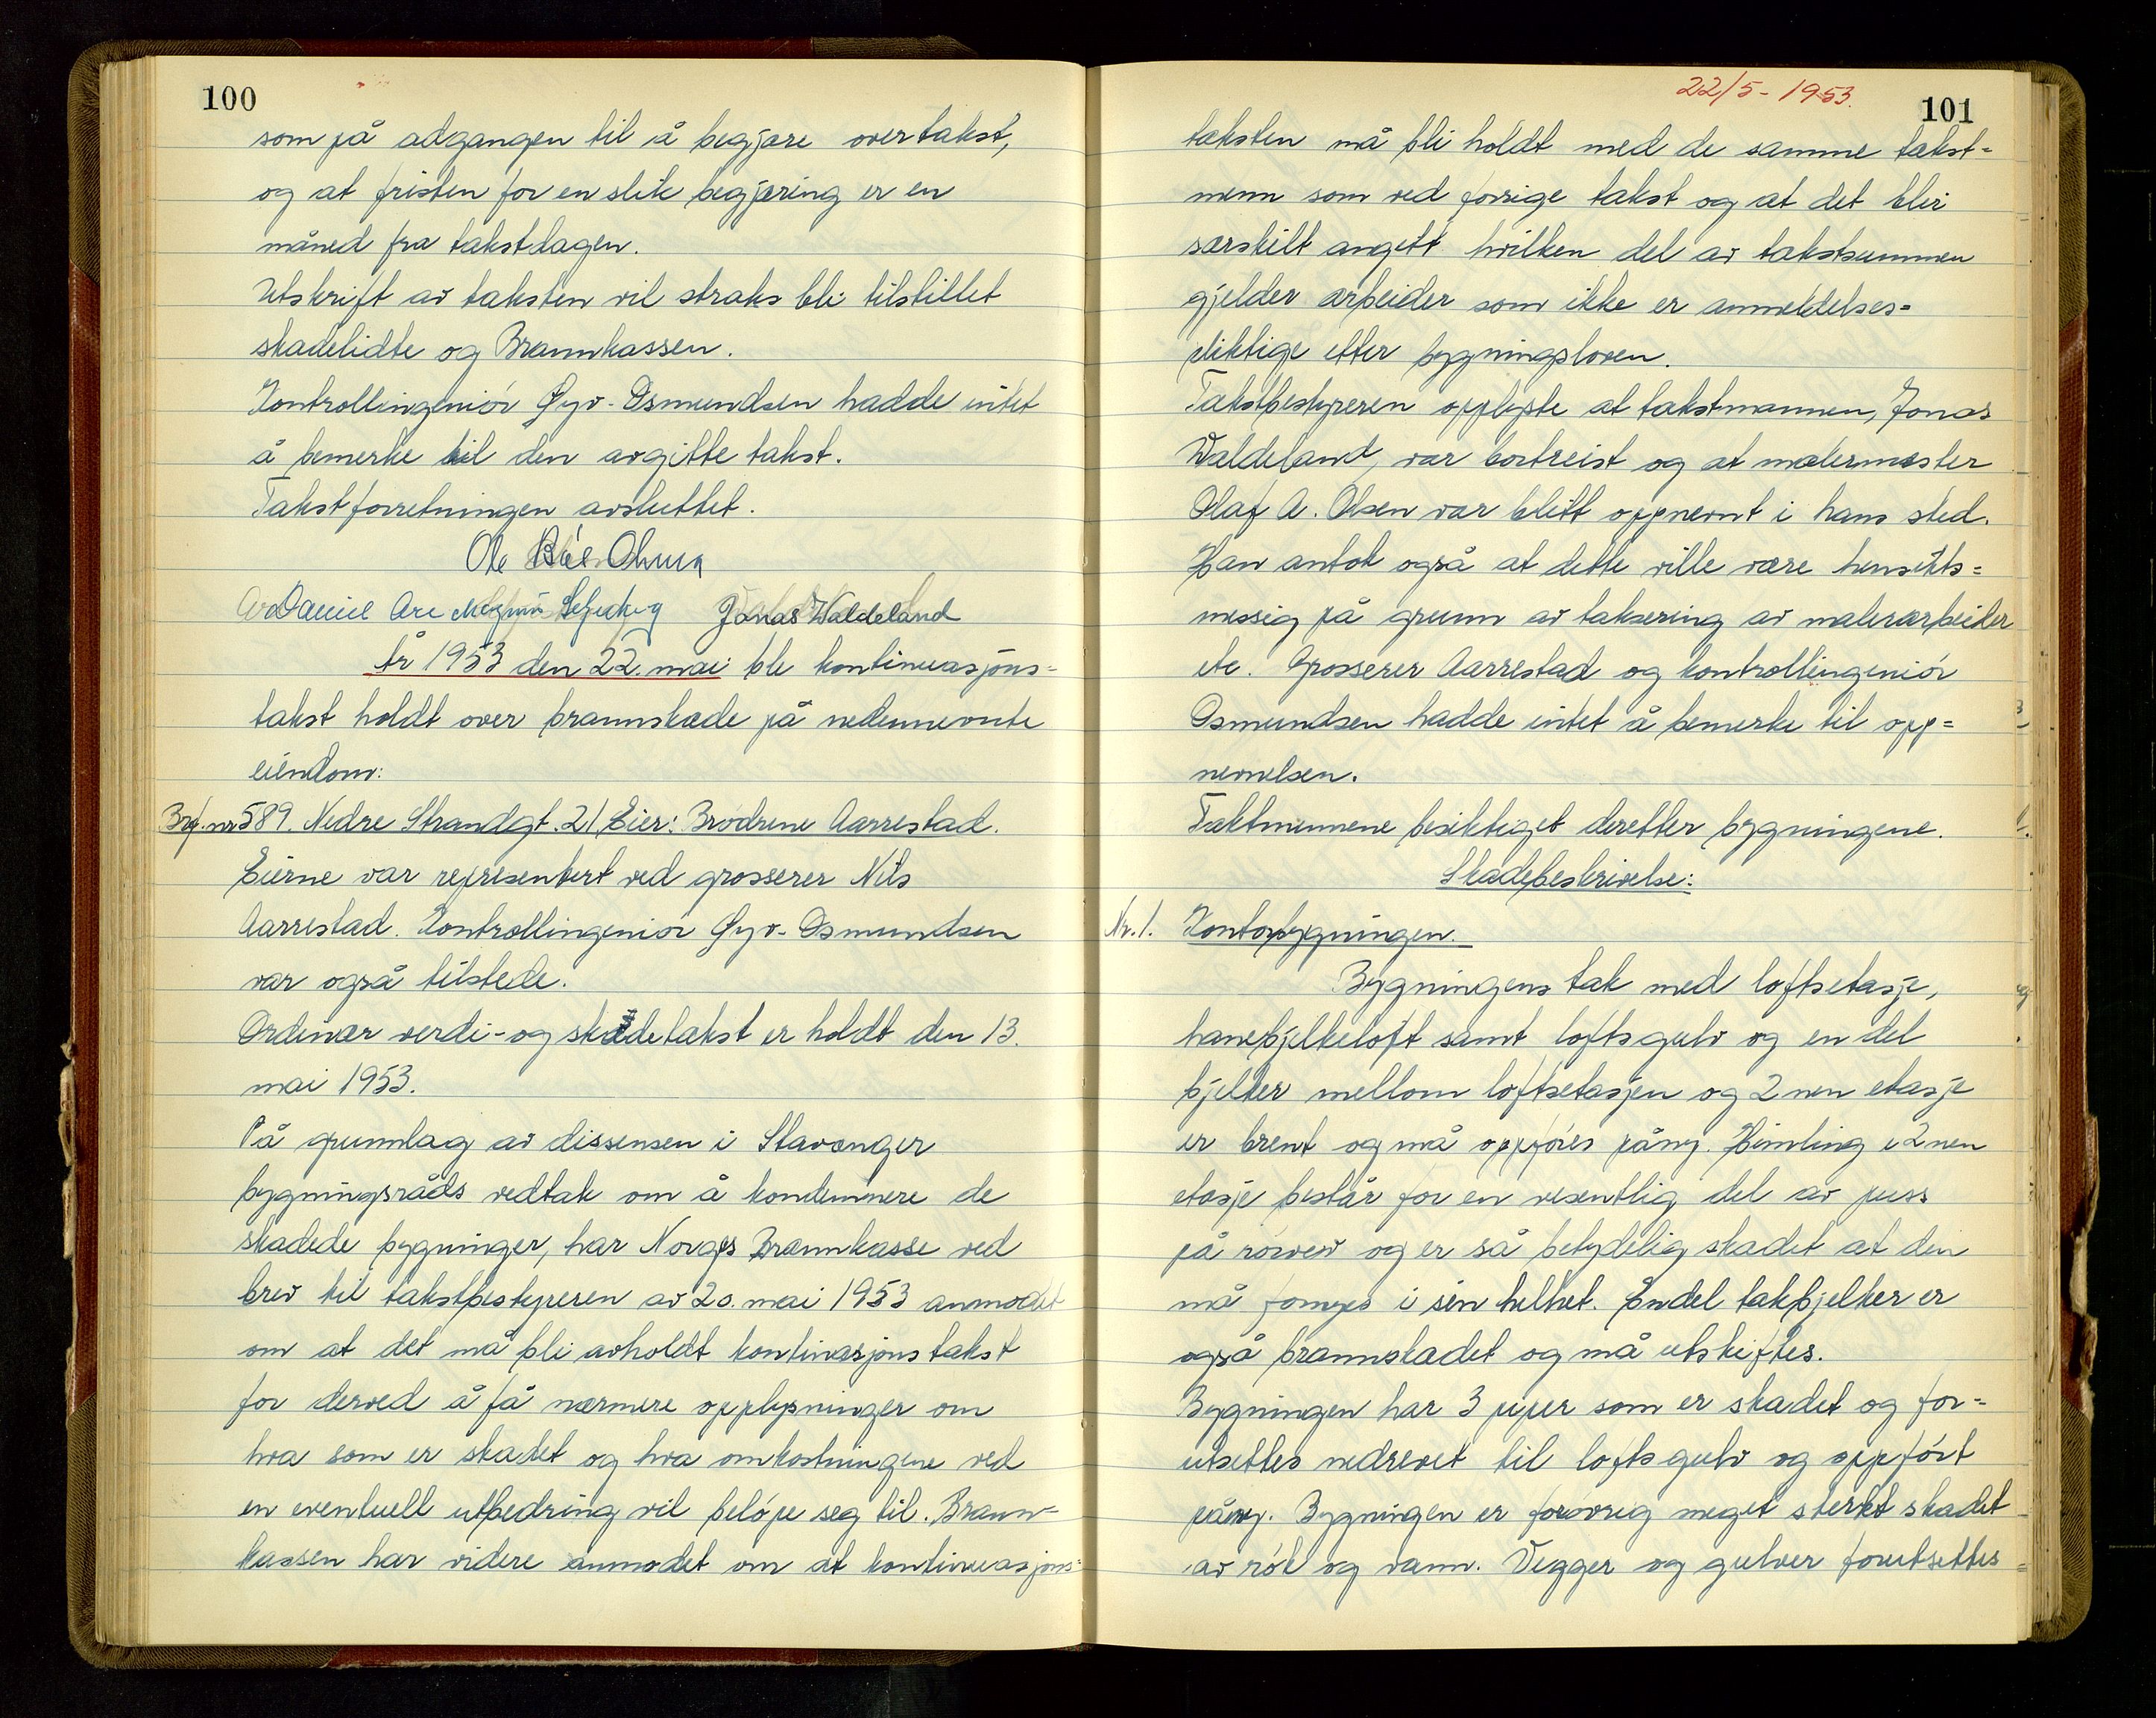 100
som på adgangen til å begjære overtakst,
og at fristen for en slik begjæring er en
måned fra takstdagen.
Utskrift av taksten vil straks bli tilstillet
skadelidte og Brannkassen.
Kontrollingeniör Øyv. Osmundsen hadde intet
å bemerke til den avgitte takst.
Takstforretningen avsluttet.
Ole
Jonas Waldeland
År 1953 den 22. mai ble kontinuasjons=
takst holdt over brannskade på nedennevnte
eiendom:
Brf. nr 589. Nedre Strandgt. 21 Eier: Brødrene Aarrestad.
Eierne var representert ved grosserer Nils
Aarrestad. Kontrollingeniör Øyv. Osmundsen
var også tilstede.
Ordinær verdi- og skadetakst er holdt den 13.
mai 1953.
På grunnlag av dissensen i Stavanger
bygningsråds vedtak om å kondemnere de
skadede bygninger, har Norges Brannkasse ved
brev til takstbestyreren av 20. mai 1953 anmodet
om at det må bli avholdt kontinasjonstakst
for derved å få nærmere opplysninger om
hva som er skadet og hva omkostningene ved
en eventuell utbedring vil beløpe seg til. Brann=
kassen har videre anmodet om at kontinuasjons=
22/5 - 1953.
101
taksten må bli holdt med de samme takst=
menn som ved forrige takst og at det blir
særskilt angitt hvilken del av takstsummen
gjelder arbeider som ikke er anmeldelses=
pliktige etter bygningsloven.
Takstbestyreren opplyste at takstmannen, Jonas
Waldeland, var bortreist og at malermester
Olaf A. Olsen var blitt oppnevnt i hans sted.
Han antok også at dette ville være hensikts=
messig på grunn av taksering av malerarbeider
etc. Grosserer Aarrestad og kontrollingeniör
Osmundsen hadde intet å bemerke til opp=
nevnelsen.
Takstmennene besiktiget deretter bygningene.
Skadebeskrivelse:
Nr. 1. Kontorbygningen.
Bygningens tak med loftsetasje,
hanebjelkeloft samt loftsgulv og en del
bjelker mellom loftsetasjen og 2nen etasje
er brent og må oppføres påny. Himling i 2nen
etasje består for en vesentlig del av puss
på rörvev og er så betydelig skadet at den
må fornyes i sin helhet. Endel takbjelker er
også brannskadet og må utskiftes.
Bygningen har 3 piper som er skadet og for=
utsettes nedrevet til loftsgulv og oppført
påny. Bygningen er forøvrig meget sterkt skadet
av røk og vann. Vegger og gulver forutsettes